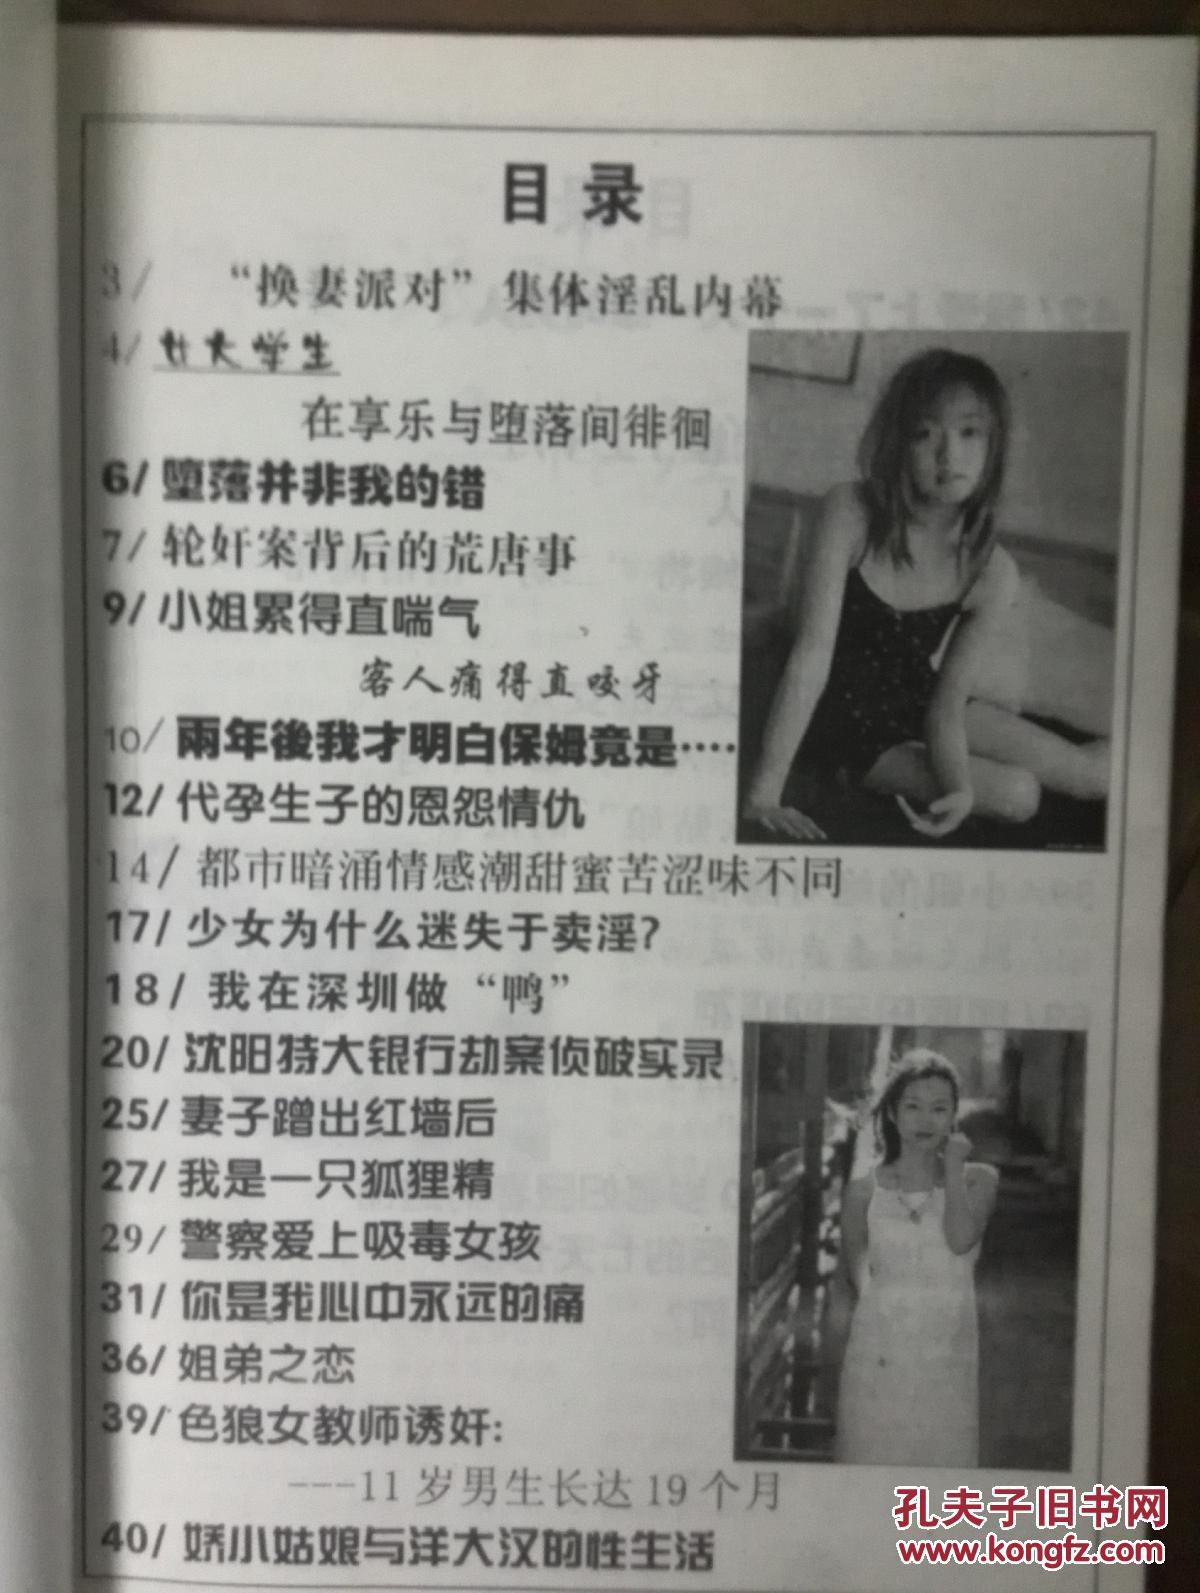 目录
3/ “换妻派对”集体淫乱内幕
4/ 女大学生
在享乐与堕落间徘徊
6/ 堕落并非我的错
7/ 轮奸案背后的荒唐事
9/ 小姐累得直喘气
客人痛得直咬牙
10/ 兩年後我才明白保姆竟是····
12/ 代孕生子的恩怨情仇
14/ 都市暗涌情感潮甜蜜苦涩味不同
17/ 少女为什么迷失于卖淫?
18/ 我在深圳做“鸭”
20/ 沈阳特大银行劫案侦破实录
25/ 妻子蹭出红墙后
27/ 我是一只狐狸精
29/ 警察爱上吸毒女孩
31/ 你是我心中永远的痛
36/ 姐弟之恋
39/ 色狼女教师诱奸:
---11岁男生长达19个月
40/ 娇小姑娘与洋大汉的性生活
孔夫子旧书网
www.kongfz.com